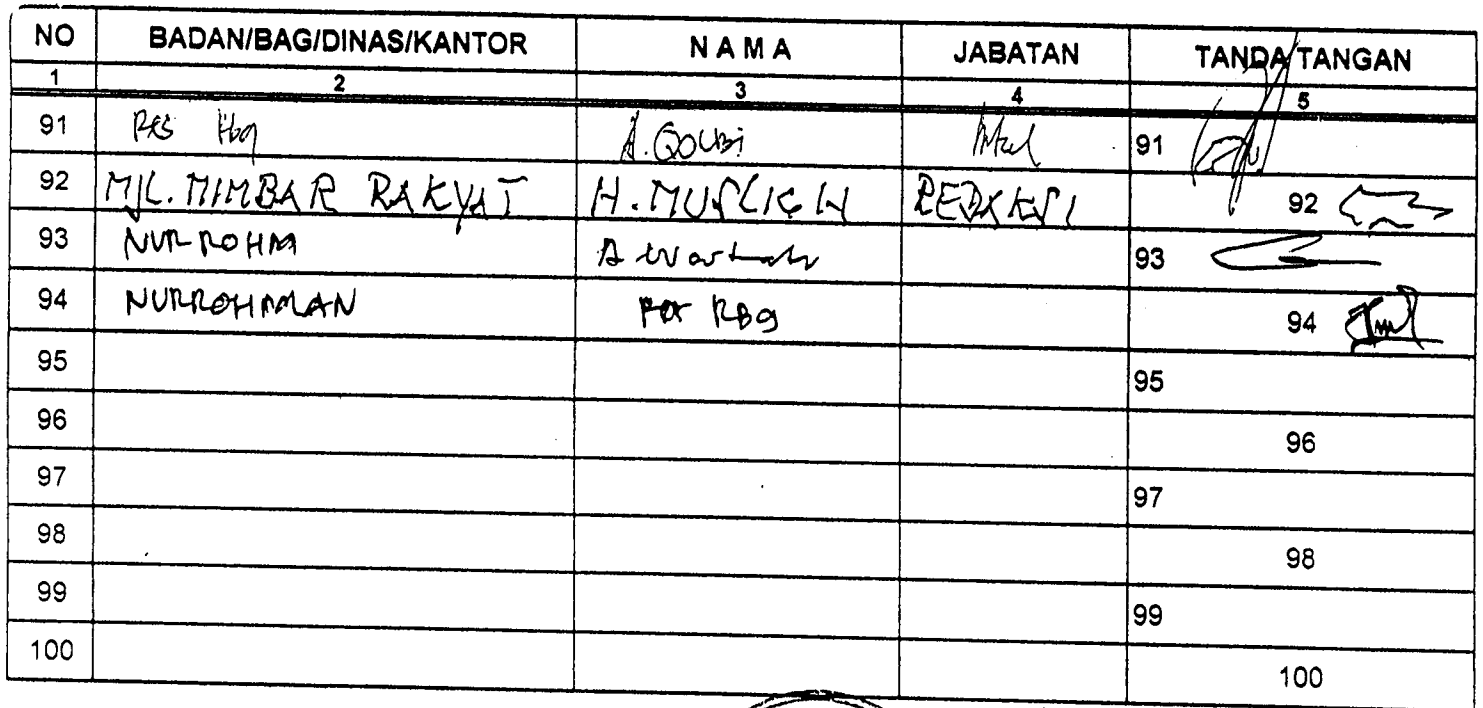 NO BADAN/BAG/DINAS/KANTOR NAMA JABATAN TANDA TANGAN
1 2 3 4 5
91 Res Rbg A. QOLBI Intel 91
92 MJL. MIMBAR RAKYAT H. MUSLICH REDAKSI 92
93 NUR ROHM 93
94 NURROHMAN RBg 94
95 95
96 96
97 97
98 98
99 99
100 100